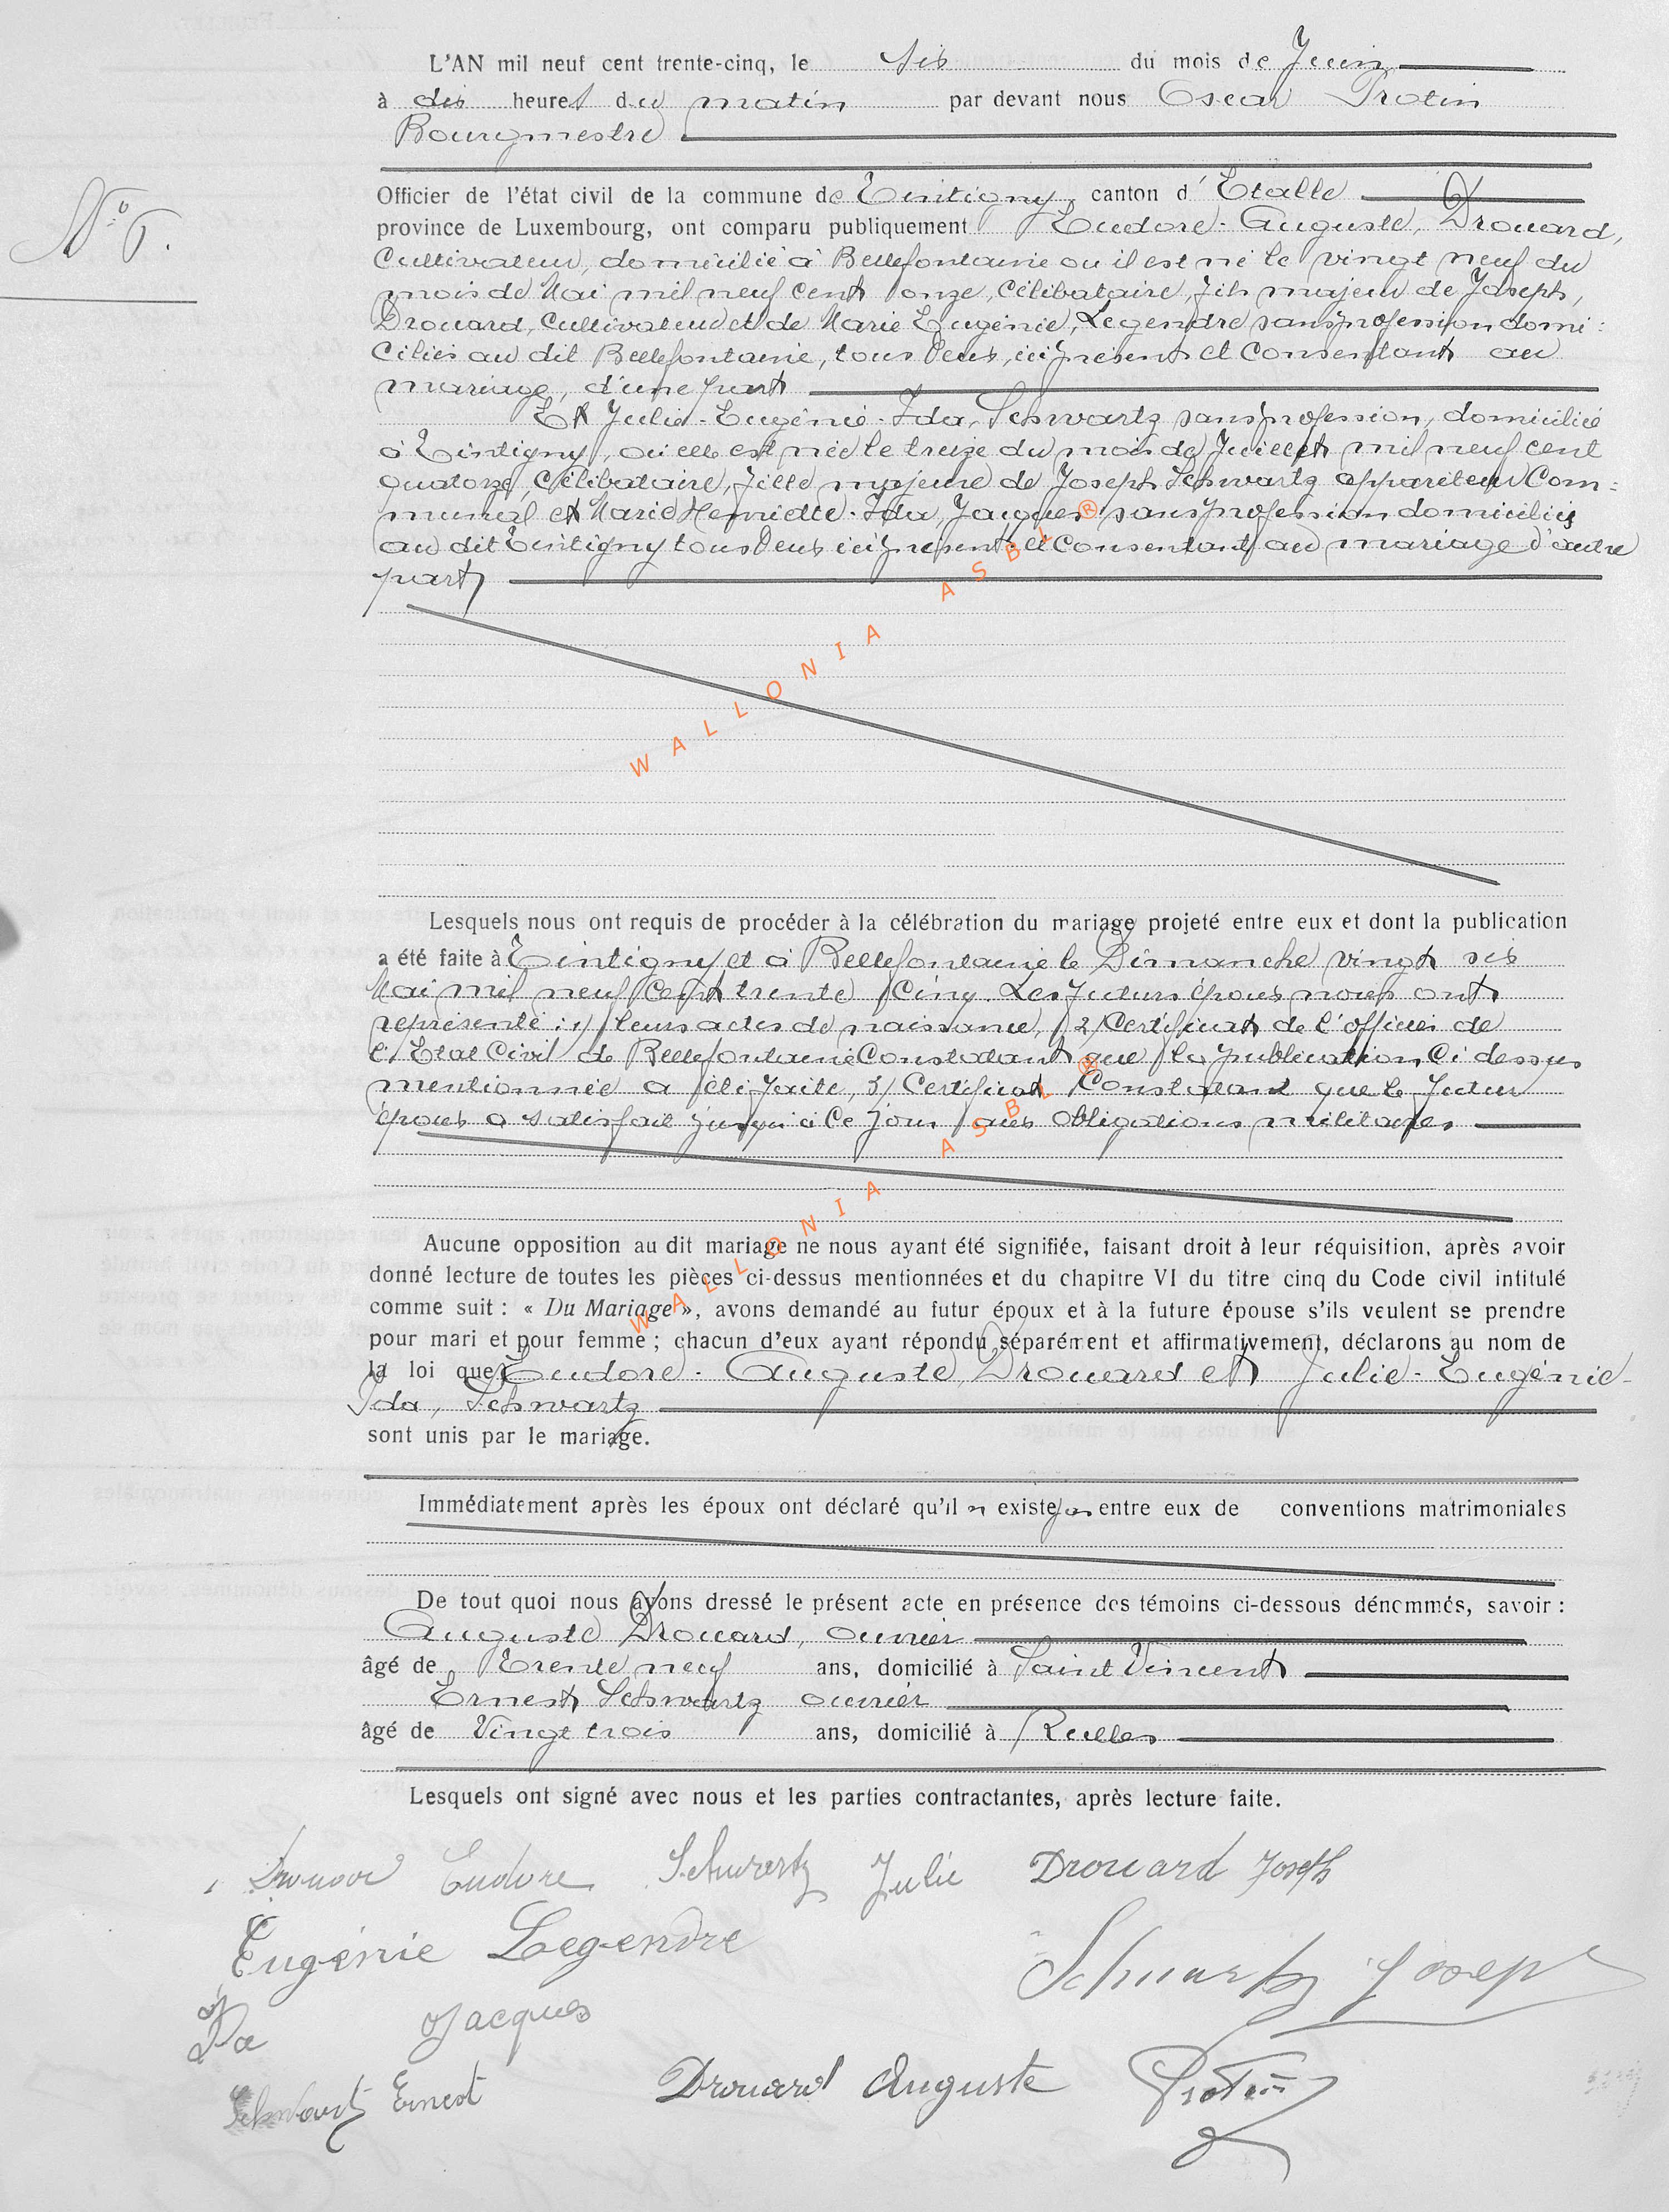 L'AN mil neuf cent trente-cinq, le six du mois de Juin
à dix heures du matin par devant nous Oscar Protin
Bourgmestre
Officier de l'état civil de la commune de Tintigny, canton d'Etalle
N° 6.
province de Luxembourg, ont comparu publiquement Eudore-Auguste, Drouard,
Cultivateur, domicilié à Bellefontaine ou il est né le vingt neuf du
mois de Mai mil neuf cent onze, célibataire, fils majeur de Joseph,
Drouard, Cultivateur et de Marie Eugénie, Legendre sans profession domi:
ciliés au dit Bellefontaine, tous deux, ici présent et consentant au
mariage, d'une part
Et Julie-Eugénie-Ida, Schwartz sans profession, domiciliée
à Tintigny, où elle est née le treize du mois de Juillet mil neuf cent
quatorze, célibataire, fille majeure de Joseph Schwartz appariteur Com:
munal et Marie Henriette-Ida, Jacques sans profession domiciliés
au dit Tintigny tous deux ici présent et consentant au mariage d'autre
part
WALLONIA ASBL ®
Lesquels nous ont requis de procéder à la célébration du mariage projeté entre eux et dont la publication
a été faite à Tintigny et à Bellefontaine le Dimanche vingt six
Mai mil neuf cent trente cinq. Les futurs époux nous ont
représenté: 1) leurs actes de naissance, 2) Certificat de l'officier de
l'Etat Civil de Bellefontaine Constatant que la publication ci dessus
mentionnée a été faite, 3) Certificat Constatant que le futur
époux a satisfait jusqu'à ce jour aux obligations militaires
WALLONIA ASBL ®
Aucune opposition au dit mariage ne nous ayant été signifiée, faisant droit à leur réquisition, après avoir
donné lecture de toutes les pièces ci-dessus mentionnées et du chapitre VI du titre cinq du Code civil intitulé
comme suit : « Du Mariage », avons demandé au futur époux et à la future épouse s'ils veulent se prendre
pour mari et pour femme ; chacun d'eux ayant répondu séparément et affirmativement, déclarons au nom de
la loi que Eudore-Auguste, Drouard et Julie-Eugénie-
Ida, Schwartz
sont unis par le mariage.
Immédiatement après les époux ont déclaré qu'il n existe pas entre eux de conventions matrimoniales
De tout quoi nous avons dressé le présent acte en présence des témoins ci-dessous dénommés, savoir :
Auguste Drouard, ouvrier
âgé de Trente neuf ans, domicilié à Saint Vincent
Ernest Schwartz ouvrier
âgé de Vingt trois ans, domicilié à Rulles
Lesquels ont signé avec nous et les parties contractantes, après lecture faite.
Drouard Eudore Schwartz Julie Drouard Joseph
Eugénie Legendre
Schwartz Joseph
Ida Jacques
Schwartz Ernest Drouard Auguste Protin